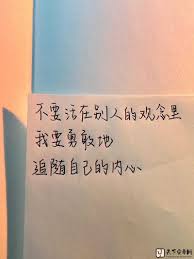 不要活在别人的观念里
我要勇敢地
追随自己的内心